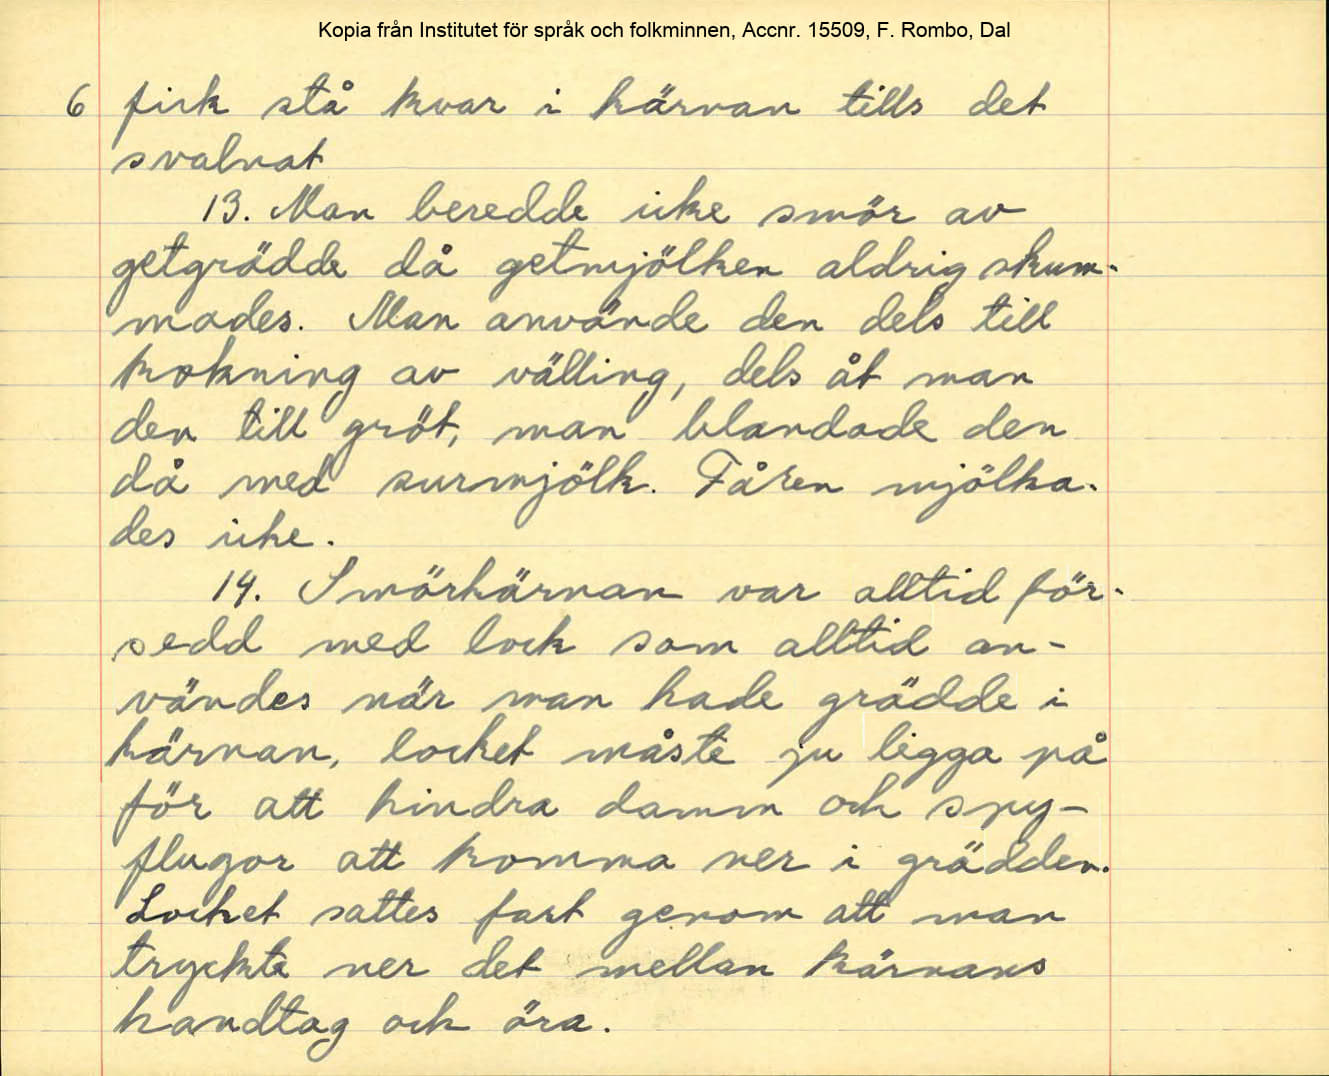 Kopia från Institutet för språk och folkminnen, Accnr. 15509, F. Rombo, Dal
6 fick stå kvar i kärnan tills det
svalnat
13. Man beredde icke smör av
getgrädde då getmjölken aldrig skum-
mades. Man använde den dels till
kokning av välling, dels åt man
den till gröt, man blandade den
då med surmjölk. Fåren mjölka-
des icke.
14. Smörkärnan var alltid för-
sedd med lock som alltid an-
vändes när man hade grädde i
kärnan, locket måste ju ligga på
för att hindra damm och spy-
flugor att komma ner i grädden.
Locket sattes fast genom att man
tryckte ner det mellan kärnans
handtag och öra.